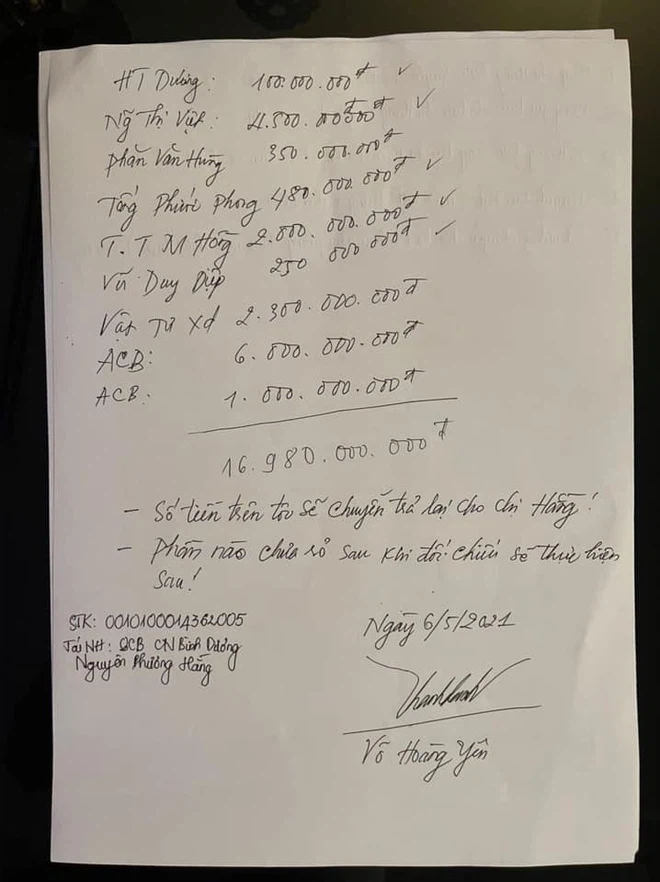 HT Dương: 100.000.000đ ✓
Ng Thị Vượt: 4.500.000000đ ✓
phan Văn Hùng 350.000.000đ
Tống Phước Phong 480.000.000đ ✓
T.T M Hồng 2.000.000.000đ ✓
Vũ Duy Diệp 250 000 000đ ✓
Vật Tư Xd 2.300.000.000đ
ACB: 6.000.000.000đ
ACB. 1.000.000.000đ
16.980.000.000đ
- Số tiền trên tôi sẽ chuyển trả lại cho chị Hằng!
- Phần nào chưa rỏ sau khi đối chiếu sẽ thực hiện
sau!
STK: 0010100014362005
Tại NH: OCB CN Bình Dương
Nguyễn Phương Hằng
Ngày 6/5/2021
Võ Hoàng Yên